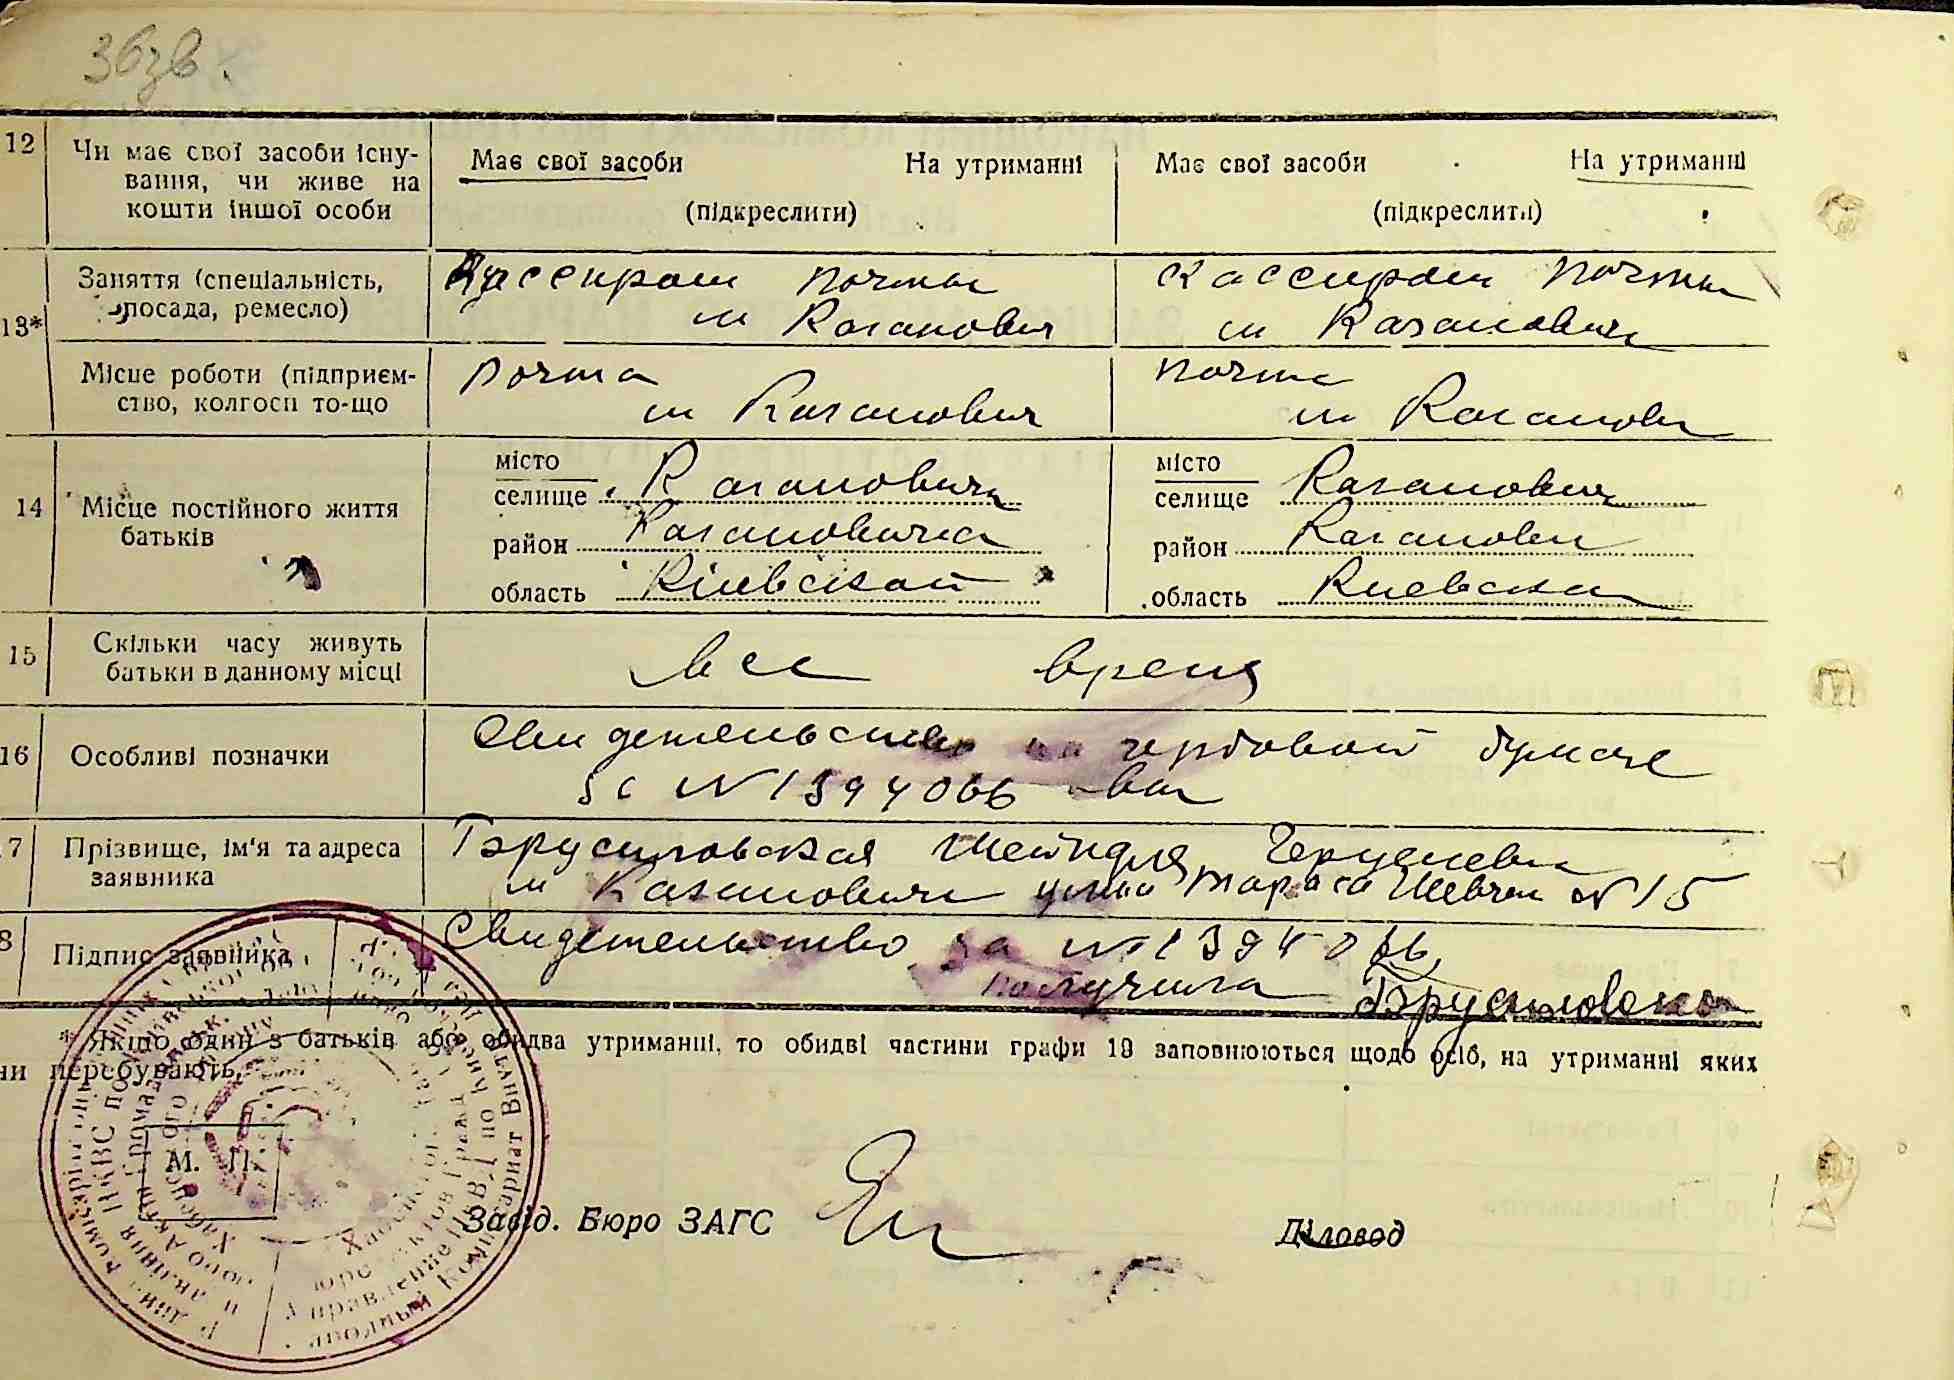 36зв.
12
Чи має свої засоби існу-
вання, чи живе на
кошти іншої особи
Має свої засоби На утриманні
(підкреслити)
Має свої засоби На утриманні
(підкреслити)
13*
Заняття (спеціальність,
посада, ремесло)
Кассиром почты
м Каганович
Кассиром почты
м Каганович
Місце роботи (підприєм-
ство, колгосп то-що
почта
м Каганович
почта
м Каганови
14
Місце постійного життя
батьків
місто
селище Кагановичи
район Кагановича
область Киевской
місто
селище Каганович
район Каганови
область Киевска
15
Скільки часу живуть
батьки в данному місці
все время
16
Особливі позначки
Свидетельство на гербовой бумаге
№ 1394066
7
Прізвище, ім'я та адреса
заявника
Брусиловская Шейндля
м Кагановичи улица Тараса Шевчен № 15
8
Підпис заявника
Свидетельство за № 1394066
получила Брусиловска
* Якщо один з батьків або обидва утриманні, то обидві частини графи 19 заповнюються щодо осіб, на утриманні яких
ни перебувають.
М. П.
Завід. Бюро ЗАГС
Діловод